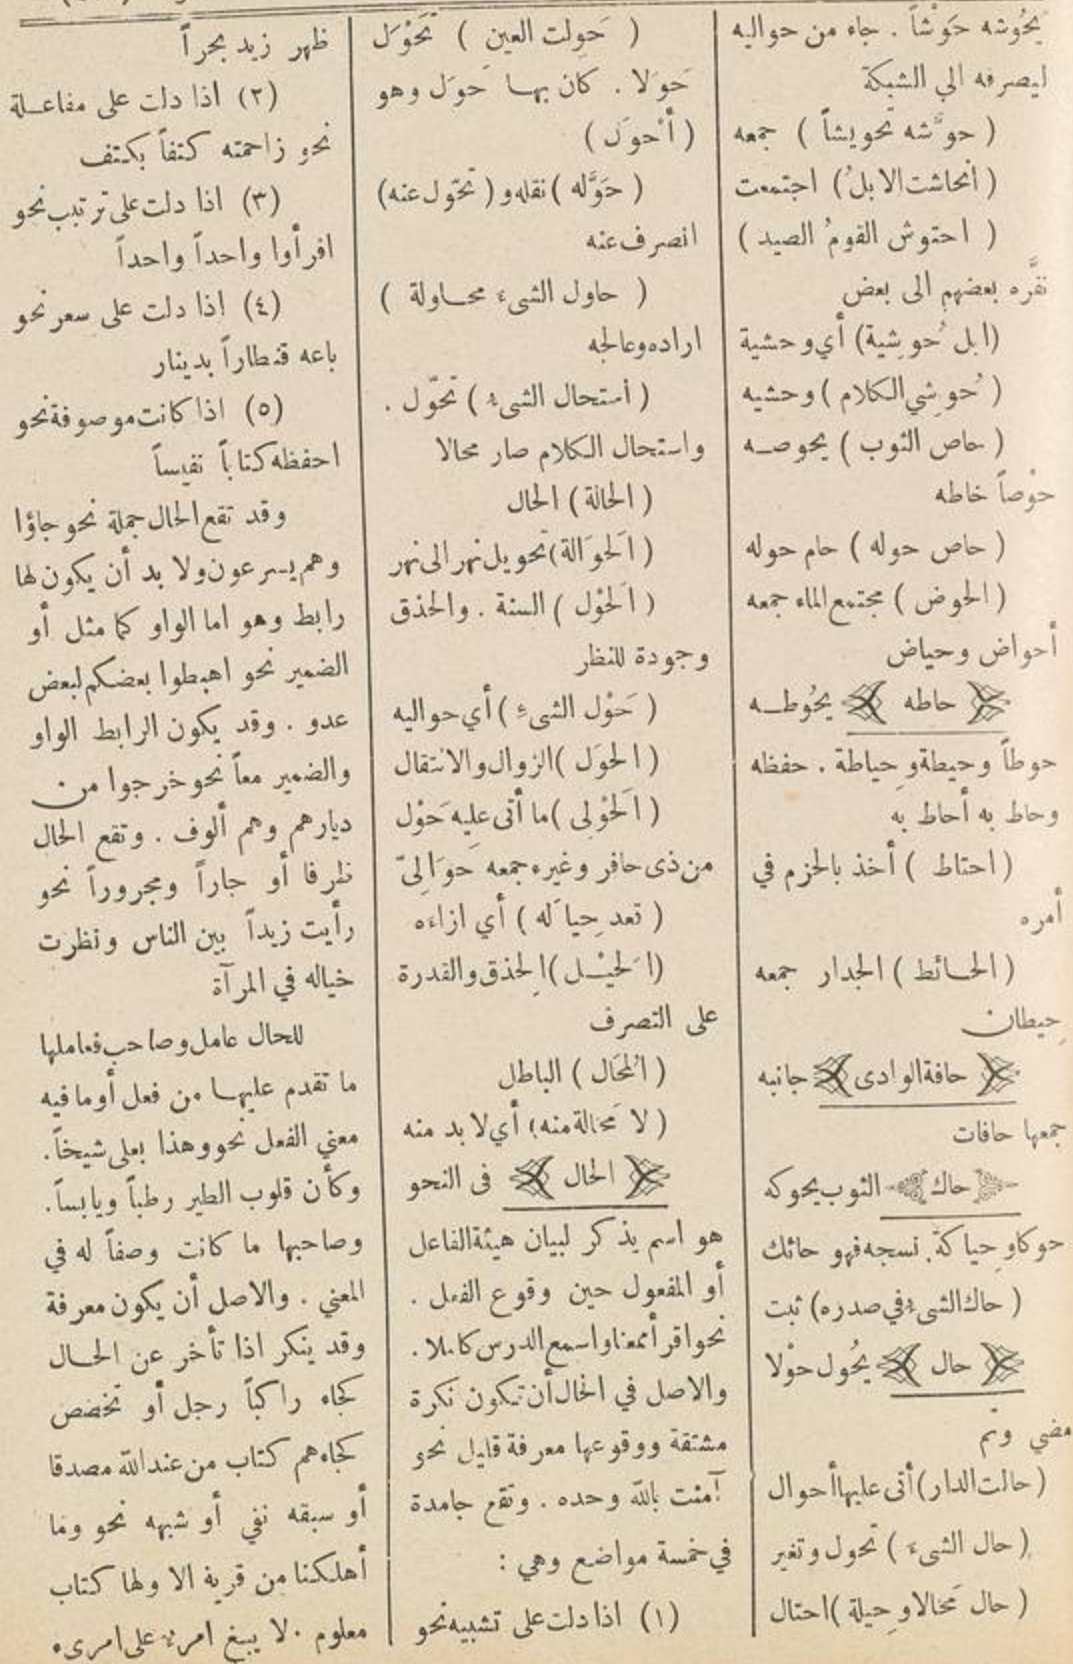 يحُوشه حَوْشاً . جاء من حواليه
ليصرفه الي الشبكة
( حوَّشه تحويشاً ) جمعه
( انحاشت الابلُ ) اجتمعت
( احتوش القومُ الصيد )
نفَّره بعضهم الى بعض
(ابل حُوشية) أي وحشية
( حُوشي الكلام ) وحشيه
( حاص الثوب ) يحوصـه
حوْصاً خاطه
( حاص حوله ) حام حوله
( الحوض ) مجتمع الماء جمعه
أحواض وحياض
حاطه يحُوطـه
حوطاً وحيطة وحِياطة . حفظه
وحاط به أحاط به
( احتاط ) أخذ بالحزم في
أمره
( الحـائط ) الجدار جمعه
حِيطان
حافة الوادى جانبه
جمعها حافات
حاك الثوب يحوكه
حوكا وحِياكة. نسجه فهو حائك
( حاك الشيء في صدره) ثبت
حال يحُول حوْلا
مضي وتم
( حالت الدار) أتى عليها أحوال
( حال الشيء ) تحول وتغير
( حال مَحالا وحِيلة ) احتال
( حَوِلت العين ) تَحْوَل
حَوَلا . كان بهـا حَوَل وهو
( أحْوَل )
( حَوَّله ) نقله و ( تحَوّل عنه)
انصرف عنه
( حاول الشيء محـاولة )
اراده وعالجه
( أستحال الشيء ) تحَوّل .
واستحال الكلام صار محالا
( الحالة ) الحال
( الحَوَالة) تحويل نهر الى نهر
( الحَوْل ) السنة . والحذق
وجودة للنظر
( حَوْل الشيء ) أي حواليه
( الحِوَل ) الزوال والانتقال
( الحَوْلى ) ما أتى عليه حَوْل
من ذى حافر وغيره جمعه حَوَالىّ
( تعد حِيَاله ) أي ازاءه
(الحَيْـل ) الحِذق والقدرة
على التصرف
( المُحَال ) الباطل
( لا مَحالة منه) أي لا بد منه
الحال فى النحو
هو اسم يذكر لبيان هيئة الفاعل
أو المفعول حين وقوع الفعل .
نحو اقرأ ممعنا واسمع الدرس كاملا .
والاصل في الحال أن تكون نكرة
مشتقة ووقوعها معرفة قليل نحو
آمنت بالله وحده . وتقع جامدة
في خمسة مواضع وهي :
(١) اذا دلت على تشبيه نحو
ظهر زيد بحراً
(٢) اذا دلت على مفاعـلة
نحو زاحمته كتفاً بكتف
(٣) اذا دلت على ترتيب نحو
اقرأوا واحداً واحداً
(٤) اذا دلت على سعر نحو
باعه قنطاراً بدينار
(٥) اذا كانت موصوفة نحو
احفظه كتاباً نفيساً
وقد تقع الحال جملة نحو جاؤا
وهم يسرعون ولا بد أن يكون لها
رابط وهو اما الواو كما مثل أو
الضمير نحو اهبطوا بعضكم لبعض
عدو . وقد يكون الرابط الواو
والضمير معاً نحو خرجوا من
ديارهم وهم ألوف . وتقع الحال
ظرفا أو جاراً ومجروراً نحو
رأيت زيداً بين الناس ونظرت
خياله في المرآة
للحال عامل وصاحب فعاملها
ما تقدم عليهـا من فعل أو ما فيه
معني الفعل نحو وهذا بعلى شيخاً.
وكأن قلوب الطير رطباً ويابساً.
وصاحبها ما كانت وصفاً له في
المعني . والاصل أن يكون معرفة
وقد ينكر اذا تأخر عن الحـال
كجاء راكباً رجل أو تخصص
كجاءهم كتاب من عند الله مصدقا
أو سبقه نفي أو شبهه نحو وما
أهلكنا من قرية الا ولها كتاب
معلوم . لا يبغ امرء على امرىء